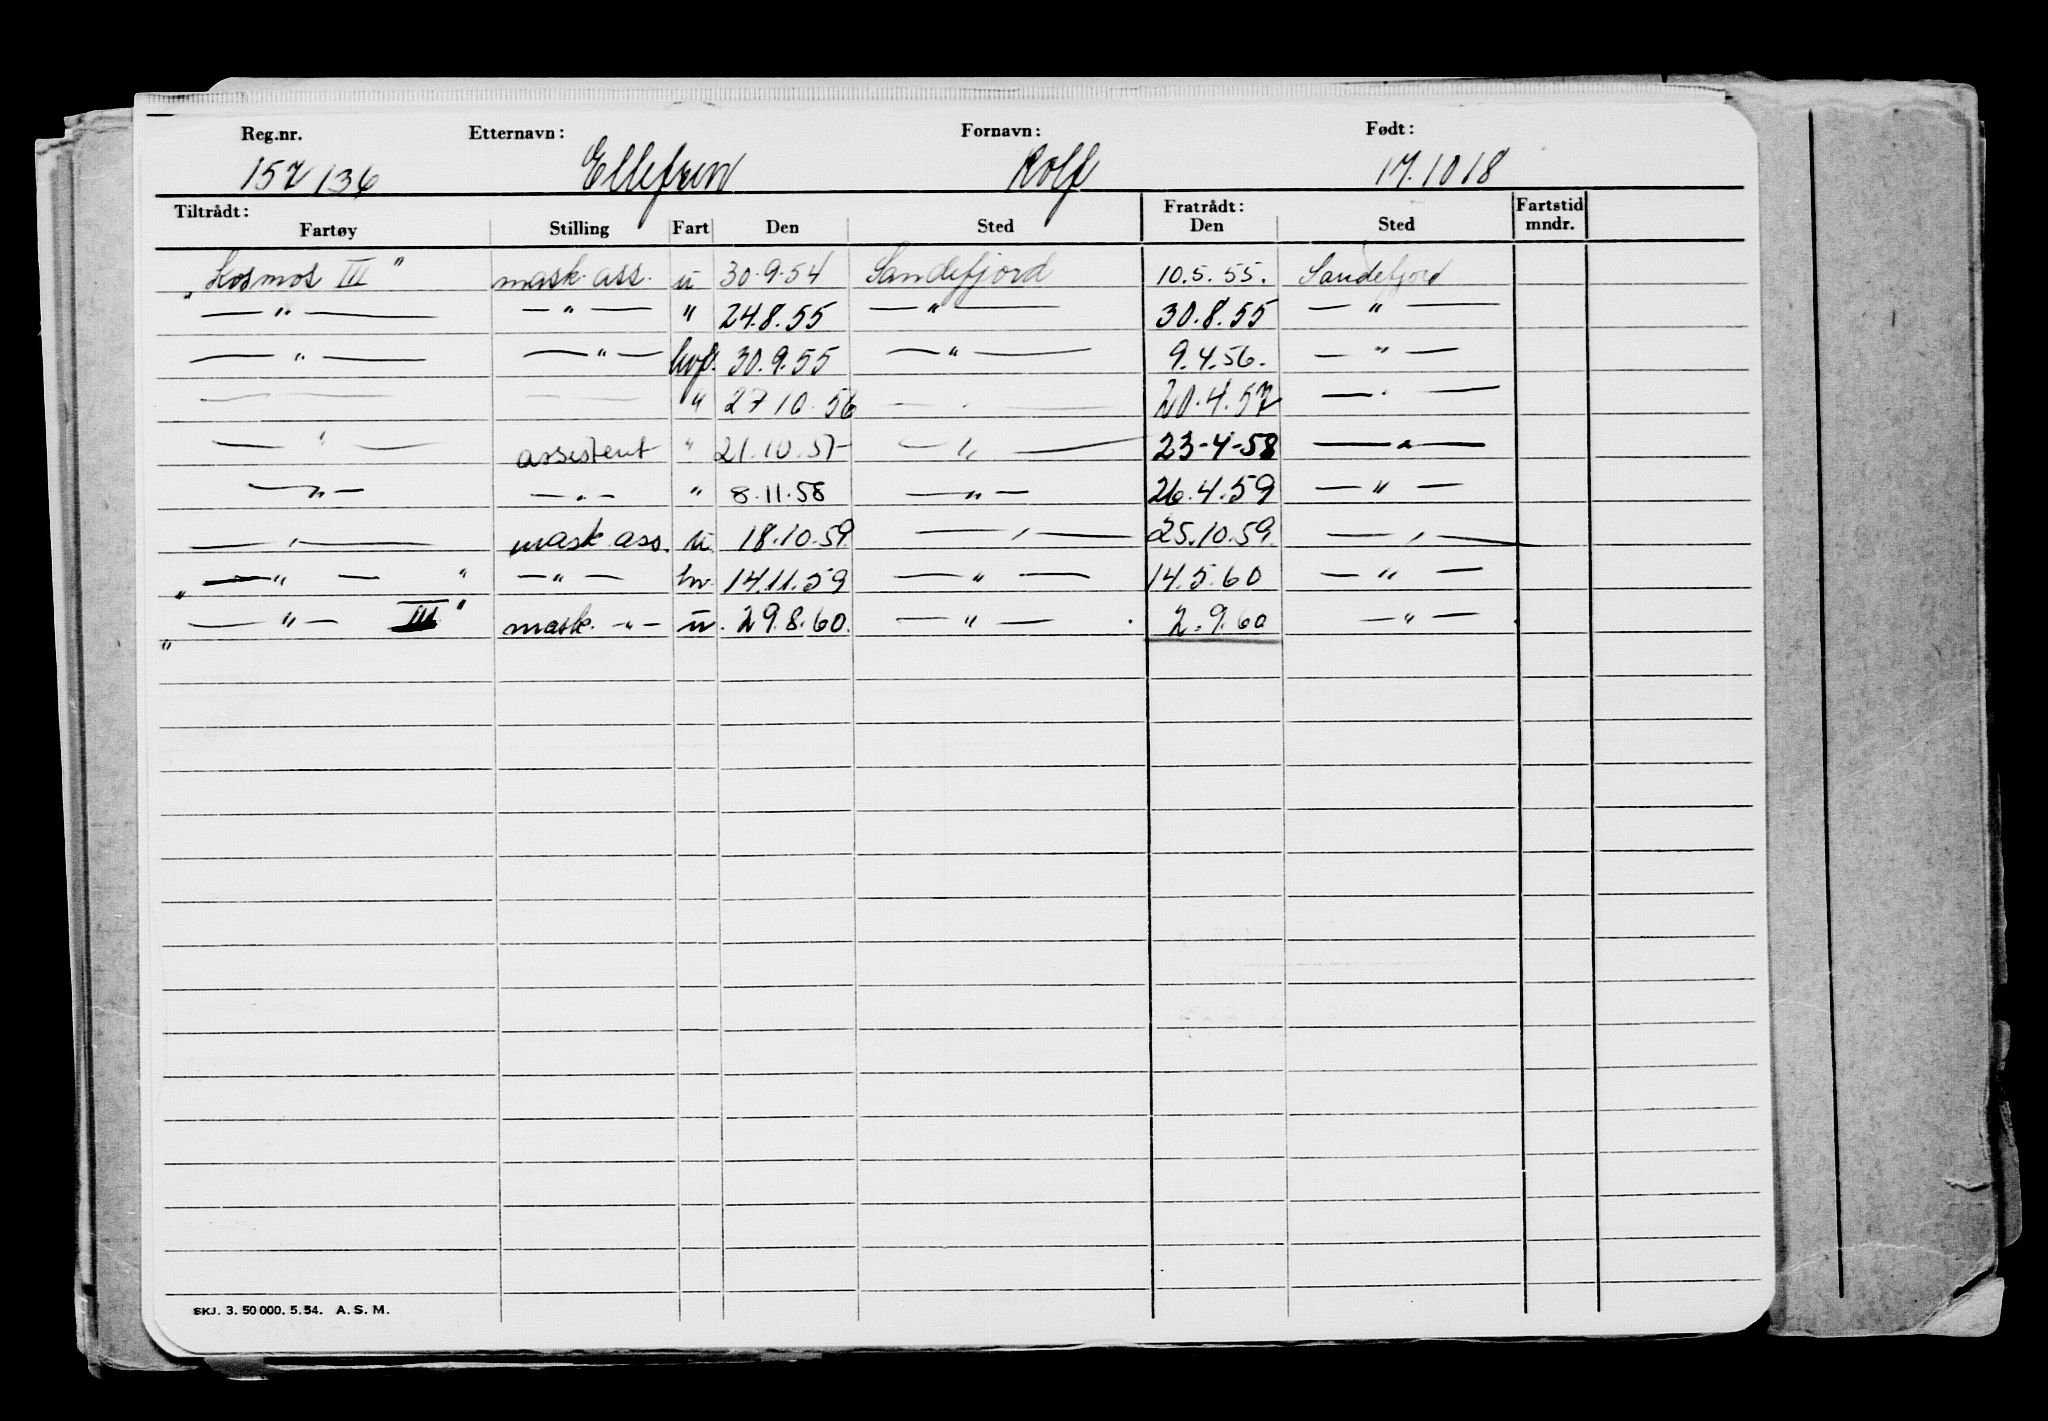 Reg.nr. Etternavn: Fornavn: Født:
157136 Ellefsen Rolf 17.10 18
Tiltrådt: Fratrådt: Fartstid
Fartøy Stilling Fart Den Sted Den Sted mndr.
"Kosmos III" mask. ass. u 30.9.54 Sandefjord 10.5.55. Sandefjord
— " — — " — " 24.8.55 — " — 30.8.55 — " —
— " — — " — hvf. 30.9.55 — " — 9.4.56. — " —
— — " 27 10.56 — . — 20.4.57 — " —
— " — assistent " 21.10.57 — " — 23-4-58 — " —
— " — — " — " 8.11.58 — " — 26.4.59 — " —
— " — mask. ass. u. 18.10.59 — " — 25.10.59. — " —
" — " — " — " — hv. 14.11.59 — " — 14.5.60 — " —
" — " — III" mask. — " — u. 29.8.60. — " — 2.9.60 — " —
SKJ. 3. 50 000. 5.54. A. S. M.